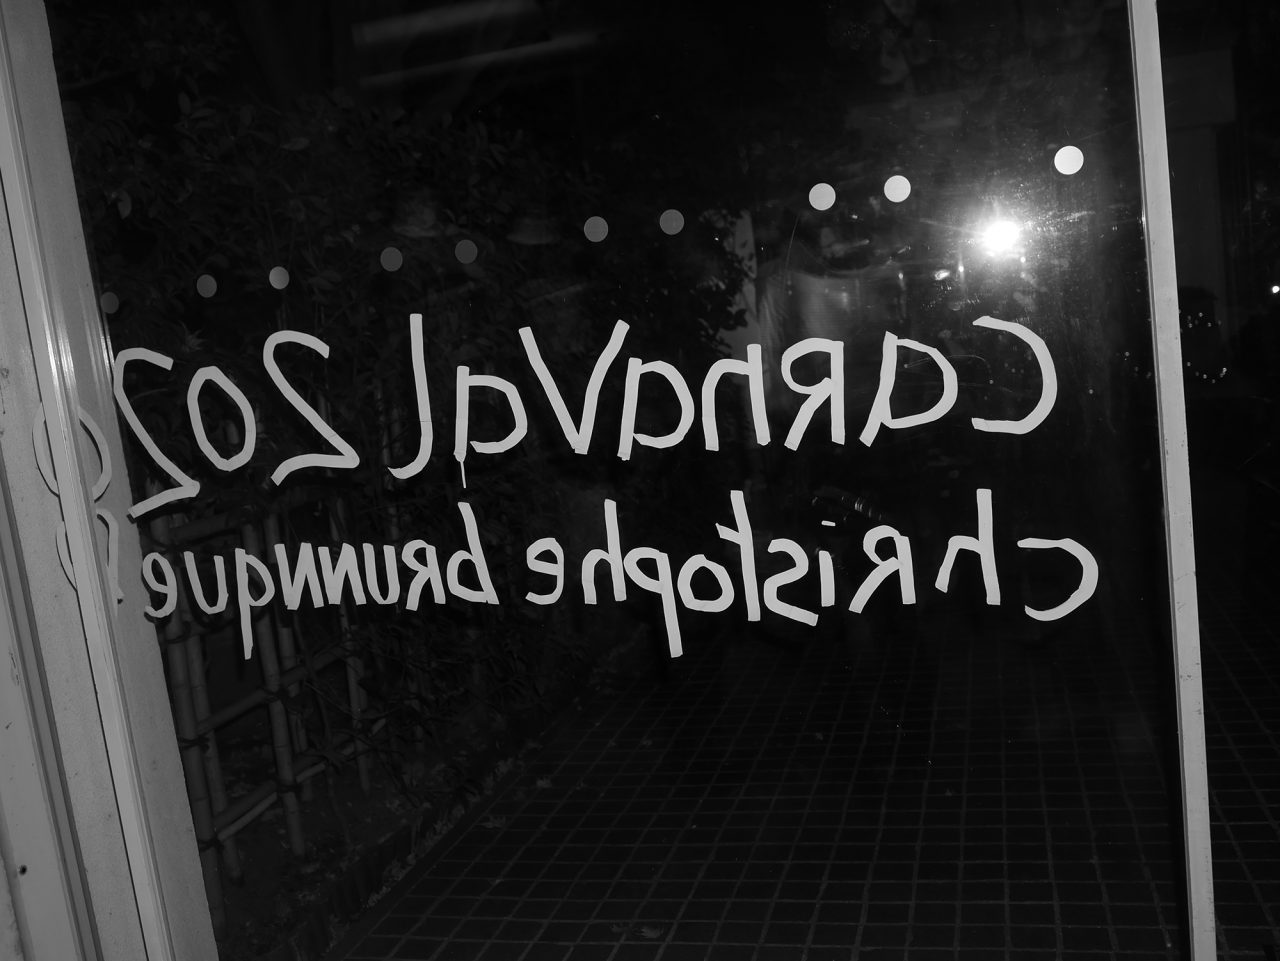 CaRnaVal 202
chRistophe bRuNNque